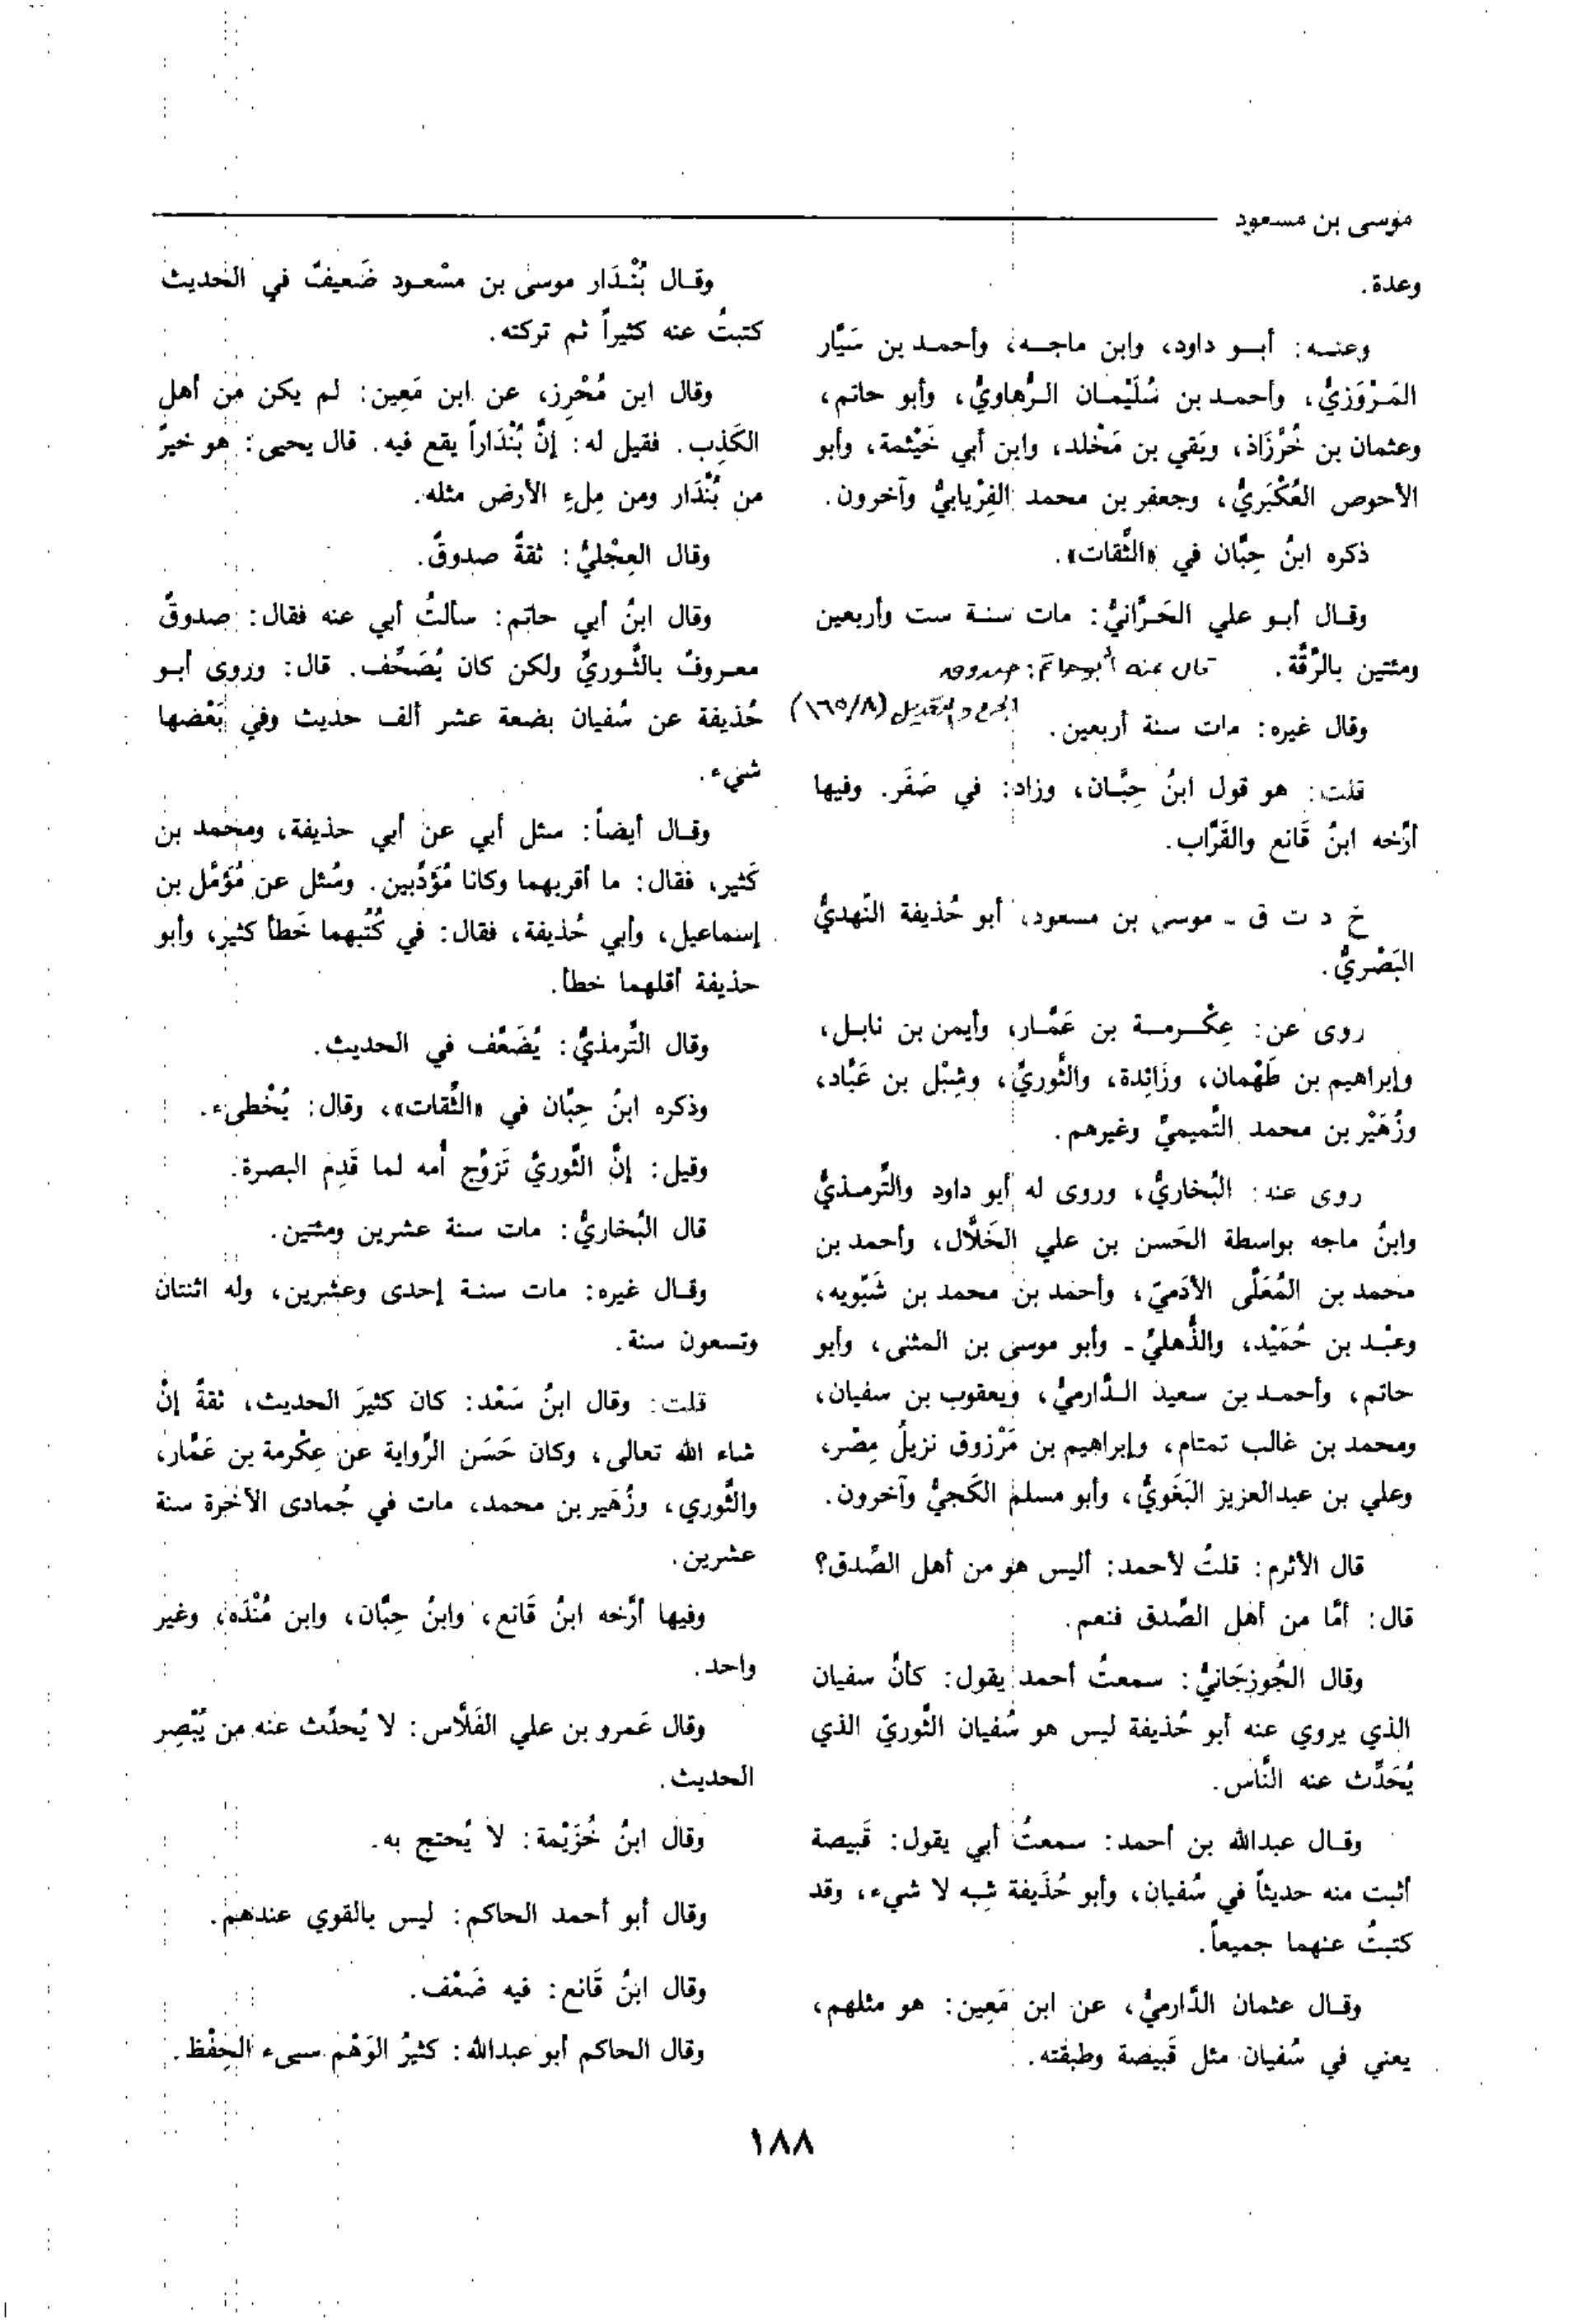 موسى بن مسعود
وعدة.
وعنـه: أبـو داود، وابن ماجـه، وأحمـد بن سَيَّار
المَـرْوَزيُّ، وأحمـد بن سُلَيْمـان الـرُّهاويُّ، وأبو حاتم،
وعثمان بن خُرَّزَاذ، وبَقي بن مَخْلد، وابن أبي خَيْثمة، وأبو
الأحوص العُكْبَريُّ، وجعفر بن محمد الفِرْيابيُّ وآخرون.
ذكره ابنُ حِبَّان في «الثِّقات».
وقـال أبـو علي الحَـرَّانيُّ: مات سنـة ست وأربعين
ومئتين بالرَّقَّة.
قال عنه أبو حاتم: صدوق
الجرح والتعديل (١٦٥/٨)
وقال غيره: مات سنة أربعين.
قلت: هو قول ابنُ حِبَّـان، وزاد: في صَفَر. وفيها
أرَّخه ابنُ قَانع والقَرَّاب.
خ د ت ق ـ موسى بن مسعود، أبو حُذيفة النَّهديُّ
البَصْريُّ.
روى عن: عِكْـرمـة بن عَمَّـار، وأيمن بن نابـل،
وإبراهيم بن طَهْمان، وزَائِدة، والثَّوريِّ، وشِبْل بن عَبَّاد،
وزُهَيْر بن محمد التَّميميِّ وغيرهم.
روى عنه: البُخاريُّ، وروى له أبو داود والتِّرمـذيُّ
وابنُ ماجه بواسطة الحَسن بن علي الخَلَّال، وأحمد بن
محمد بن المُعَلَّى الأدَميّ، وأحمد بن محمد بن شَبّويه،
وعبْـد بن حُمَيْد، والذُّهليُّ ـ وأبو موسى بن المثنى، وأبو
حاتم، وأحمـد بن سعيد الـدَّارميُّ، ويعقوب بن سفيان،
ومحمد بن غالب تمتام، وإبراهيم بن مَرْزوق نزيلُ مِصْر،
وعلي بن عبدالعزيز البَغَويُّ، وأبو مسلم الكَجيُّ وآخرون.
قال الأثرم: قلتُ لأحمد: أليس هو من أهل الصِّدق؟
قال: أمَّا من أهل الصِّدق فنعم.
وقال الجُوزجَانيُّ: سمعتُ أحمد يقول: كأنَّ سفيان
الذي يروي عنه أبو حُذيفة ليس هو سُفيان الثَّوريّ الذي
يُحَدِّث عنه النَّاس.
وقـال عبدالله بن أحمد: سمعتُ أبي يقول: قَبيصة
أثبت منه حديثاً في سُفيان، وأبو حُذَيفة شِبه لا شيء، وقد
كتبتُ عنهما جميعاً.
وقـال عثمان الدَّارميُّ، عن ابن مَعِين: هو مثلهم،
يعني في سُفيان مثل قَبيصة وطبقته.
وقـال بُنْـدَار موسى بن مسْعـود ضَعيفٌ في الحديث
كتبتُ عنه كثيراً ثم تركته.
وقال ابن مُحْرِز، عن ابن مَعِين: لم يكن من أهل
الكَذِب. فقيل له: إنَّ بُنْدَاراً يقع فيه. قال يحيى: هو خيرٌ
من بُنْدَار ومن مِلءِ الأرض مثله.
وقال العِجْليُّ: ثقةٌ صدوقٌ.
وقال ابنُ أبي حاتم: سألتُ أبي عنه فقال: صدوقٌ
معـروفٌ بالثَّـوريِّ ولكن كان يُصَحِّف. قال: وروى أبـو
حُذيفة عن سُفيان بضعة عشر ألف حديث وفي بَعْضها
شيء.
وقـال أيضاً: سئل أبي عن أبي حذيفة، ومحمد بن
كَثير، فقال: ما أقربهما وكانا مُؤَدِّبين. وسُئل عن مُؤَمَّل بن
إسماعيل، وأبي حُذيفة، فقال: في كُتُبهما خَطأ كثير، وأبو
حذيفة أقلهما خطأ.
وقال التِّرمذيُّ: يُضَعَّف في الحديث.
وذكره ابنُ حِبَّان في «الثِّقات»، وقال: يُخْطىء.
وقيل: إنَّ الثَّوريَّ تَزوَّج أُمه لما قَدِم البصرة.
قال البُخاريُّ: مات سنة عشرين ومئتين.
وقـال غيره: مات سنـة إحدى وعشرين، وله اثنتان
وتسعون سنة.
قلت: وقال ابنُ سَعْد: كان كثيرَ الحديث، ثقةً إنْ
شاء الله تعالى، وكان حَسَن الرِّواية عن عِكْرمة بن عَمَّار،
والثَّوري، وزُهَير بن محمد، مات في جُمادى الآخرة سنة
عشرين.
وفيها أرَّخه ابنُ قَانع، وابنُ حِبَّان، وابن مُنْدَه، وغير
واحد.
وقال عَمرو بن علي الفَلَّاس: لا يُحدِّث عنه من يُبْصِر
الحديث.
وقال ابنُ خُزَيْمة: لا يُحتج به.
وقال أبو أحمد الحاكم: ليس بالقوي عندهم.
وقال ابنُ قَانع: فيه ضَعْف.
وقال الحاكم أبو عبدالله: كثيرُ الوَهْم سيىء الحِفْظ.
١٨٨